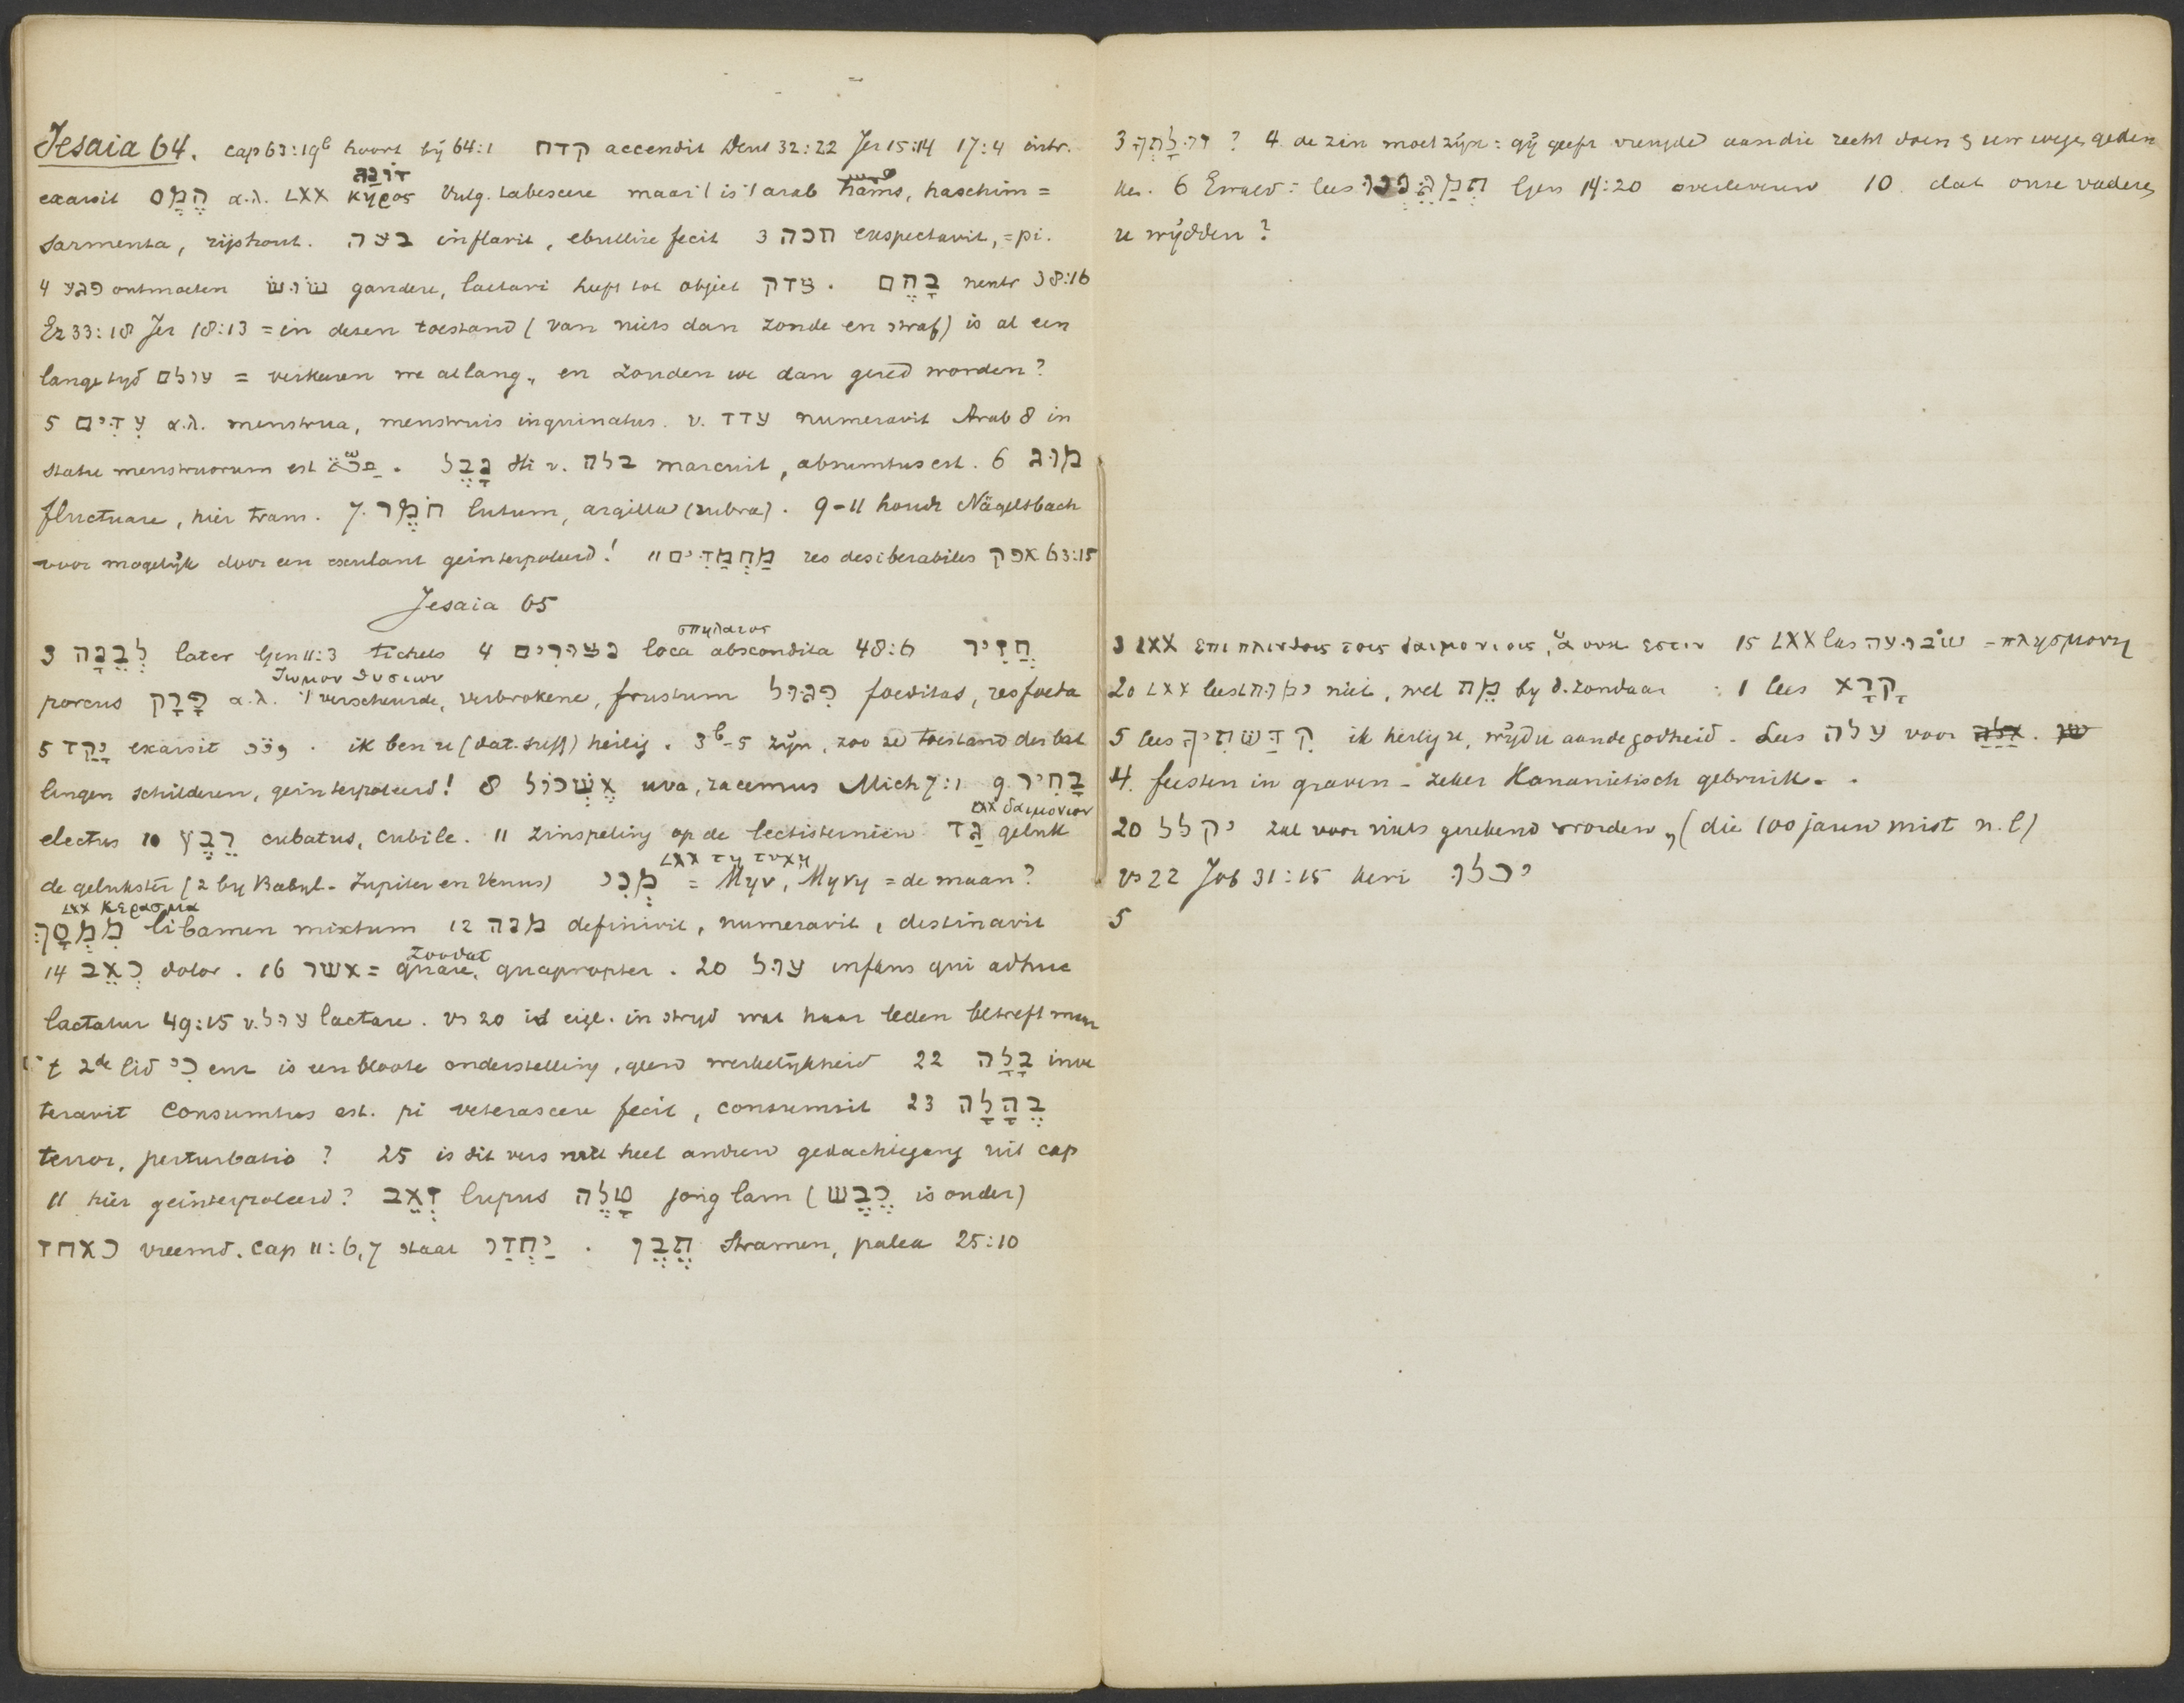 Jesaia 64. cap 63:19b hoort bij 64:1 קדח accendit Deut 32:22 Jer 15:14 17:4 intr.
דונג
exarsit הֲמָס α.λ. LXX κηρος Vulg. tabescere maar 't is 't arab hams, haschim =
sarmenta, rijshout. בעה inflavit, ebullire fecit 3 חכה exspectavit, = pi.
4 פגע ontmoeten שׂושׂ gaudere, laetari heeft tot object צדק. בָהֶם neutr 38:16
Ez 33:18 Jer 18:13 = in dezen toestand (van niets dan zonde en straf) is al een
lange tyd עולם = verkeeren we al lang, en zouden we dan gered worden?
5 עִדִּים α.λ. menstrua, menstruis inquinatus. v. עדד numeravit Arab 8 in
statu menstruorum est. נבל Hi v. בלה marcuit, absumtus est. 6 מוג
fluctuare, hier trans. 7. חֹמֶר lutum, argilla (rubra). 9-11 houdt Nägelsbach
voor mogelijk door een exulant geinterpoleerd! 11 מַחֲמַדִּים res desiberabiles אפק 63:15
Jesaia 65
σπηλαιοις
3 לְבֵנָה later Gen 11:3 tichels 4 נצורים loca abscondita 48:6 חֲזִיר
ζωμον θυσιων
porcus פָּרָק α.λ. 't verscheurde, verbrokene, frustum פִגּוּל foeditas, res foeda
5 יָקַד exarsit. ik ben u (dat. suff) heilig. 3b-5 zijn, zoo ze toestand der bal
lingen schilderen, geinterpoleerd! 8 אֶשְׁכּוֹל uva, racemus Mich 7:1 9 בָּחִיר
LXX δαιμονιον
electus 10 רֵבֶץ cubatus, cubile. 11 zinspeling op de lectisterniën גַּד geluk
LXX τη τυχη
de gelukster (2 by Babyl- Jupiter en Venus) מְנִי = Μην, Μηνη = de maan?
LXX κερασμα
מִמְסָךְ libamen mixtum 12 מנה definivit, numeravit, destinavit
zoodat
14 כְּאֵב dolor. 16 אשר = quare, quapropter. 20 עוּל infans qui adhuc
lactatur 49:15 v. עוּל lactare. vs 20 is eige. in stryd wat haar leden betreft maar
't 2de lid כי enz is een bloote onderstelling, geen werkelijkheid 22 בָּלָה inve
teravit consumtus est. pi veterascere fecit, consumsit 23 בֶּהָלָה
terror, perturbatio? 25 is dit vers met heel andere gedachtegang uit cap
11 hier geinterpoleerd? זְאֵב lupus טָלֶה jong lam (כֶּבֶשׂ is ouder)
כאחד vreemd. cap 11:6,7 staat יַחְדָּו. תֶּבֶן stramen, palea 25:10
3 ? 4. de zin moet zijn: gij geeft vreugde aan die recht doen & uw wegen geden
ken. 6 Ewald: lees Gen 14:20 overleveren 10. dat onze vaderen
u wijdden?
3 LXX επι πλινθοις τοις δαιμονιοις, ἅ ουκ εστιν 15 LXX las שׂבועה = πλησμονη
20 LXX leest ימות niet, wel מֵת by d. zondaar : 1 lees קָרָא
5 lees קִדַּשְׁתִּיךָ ik heilig u, wijd u aan de godheid. Lees עלה voor אלה.
4. feesten in graven - zeker Kananietisch gebruik.
20 יקלל zal voor niets gerekend worden, (die 100 jaren mist n.l)
vs 22 Job 31:15 keri יכלו
5